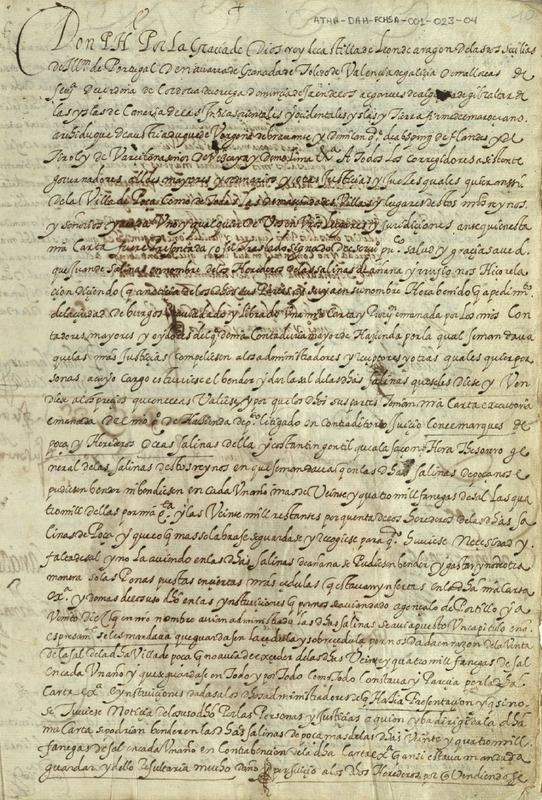 ATHA-DAH-FCHSA-001-023-04
Don Phe Por La Gracia de Dios rey de castilla de leon de aragon de las dos sicilias
de Jlm de Portugal de navarra de Granada de Toledo de Valencia de galizia de mallorcas de
sevia de cerdeña de Cordova de corcega de murcia de Jaen de los algarves de algezira de gibraltar de
las yslas de Canaria de las Yndias orientales y ocidentales yslas y Tierra firme del mar oceano
archiduque de austria duque de Vorgoña de bravante y de milan conde de abspurg de flandes y de
tirol y de Varcelona señor de Vizcaya y de molina & A Todos Los corregidores asistente
governadores alcaldes mayores y ordinarios y otros Justicias y Juezes quales quier ansi
de la Villa de Poza Como de Todas las demas ciudades Villas y lugares destos mios reynos
y señorios y a cada Uno y qualquier de Vos en Vros Lugares y Jurisdiciones ante quien esta
mi Carta fuere presentada y su traslado signado de escrivano puco salud y gracia saved
que Juan de Salinas en nombre de los Herederos de las salinas de añana y
cion diziendo
de la ciudad de burgos librado Una mi Carta y emanada por los mios Con
tadores mayores y oydores de la Contaduria mayor de Hazienda por la qual se mandava
que las mis Justicias compeliesen a los administradores y receptores y otras quales quier per
sonas a cuyo Cargo estuviese el bender y dar la sal de las dhas Salinas que se les Diese y Ven
diese a los precios que
emanada de litigado en Contraditorio Juicio Con el marques de
poza y Herederos de las salinas della y costantin gentil que a la saçon Hera Thesorero ge
neral de las salinas destos reynos en que se mandava que en las dhas Salinas de poza no se
pudiesen bender ni bendiesen en cada Un año mas de Veinte y quatro mill fanegas de sal las qua
tro mill dellas por mi y las Veinte mill restantes por quenta de los Herederos de las dhas sa
linas de Poza y que lo que mas se labrase se guardase y recogiese para quando Huviese Necesidad y
falta de sal y no la aviendo en las dhas Salinas de añana se Pudiesen bender y gastar y no de otra
manera so las Penas puestas en ciertas mis cedulas que estavan ynsertas en la dha mi Carta
y demas de lo suso dho en las ynstruciones que por nos se avian dado a gonçalo de Portillo y a
que en mi nombre avian administrado las dhas salinas se avia puesto Un capitulo en
se les mandava que guardasen la cedula y sobrecedula por nos dada en razon de la Venta
de la sal de la dha Villa de poza que no avia de exceder de las dhas Veinte y quatro mill fanegas de sal
en cada Un año y que se guardase en Todo y por Todo como Todo Constava y Parecia por la dha
Carta e ynstruciones dadas a los dhos administradores de que Hazia Presentacion y que si no
se Tuviese Noticia de lo suso dho Por las Personas y Justicias a quien yba dirigida la dha
mi Carta se podrian bender en las dhas salinas de poza mas de las dhas Veinte y quatro mill
fanegas de sal en cada Un año en Contrabencion de la dha Carta que ansi estava mandada
guardar y dello resultaria mucho daño y perjuicio a los dhos Herederos por que Vendiendose